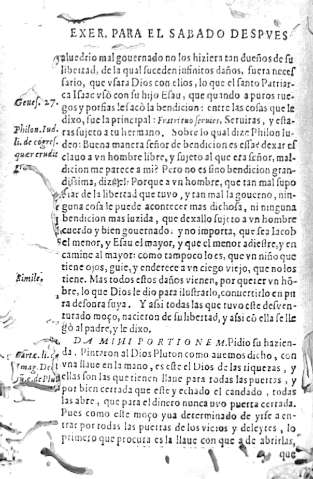 EXER. PARA EL SABADO DESPVES
aluedrio mal gouernado no los hiziera tan dueños de su
libertad, de la qual suceden infinitos daños, fuera neces
sario, que vsara Dios con ellos, lo que el santo Patriar-
ca Isaac vsò con su hijo Esau, que quando a puros rue-
gos y porfias le sacò la bendicion: entre las cosas que le
Genes. 27.
dixo, fue la principal: Fratri tuo seruies, Seruiras, y esta-
ras sujeto a tu hermano. Sobre lo qual dize Philon Iu-
Philon. Iud.
deo: Buena manera señor de bendicion es essa: dexar es
li. de cõgres.
clauo a vn hombre libre, y sujeto al que era señor, mal-
quer. erudit
dicion me parece a mi? Pero no es sino bendicion gran-
dissima, dize el: Porque a vn hombre, que tan mal supo
vsar de la libertad que tuvo, y tan mal la gouerno, nin-
guna cosa le puede acontecer mas dichosa, ni ninguna
bendicion mas luzida, que dexallo sujeto a vn hombre
cuerdo y bien gouernado. y no importa, que sea Iacob
el menor, y Esau el mayor, y que el menor adiestre, y en
camine al mayor: como tampoco lo es, que vn niño que
tiene ojos, guie, y enderece a vn ciego viejo, que no los
Simile.
tiene. Mas todos estos daños vienen, por querer vn hõ-
bre, lo que Dios le dio para ilustrarlo, conuertirlo en pu
ra desonra suya. Y assi todas las que tuvo este desven-
turado moço, nacieron de su libertad, y assi cõ ella se lle
gò al padre, y le dixo.
DA MIHI PORTIONEM. Pidio su hazien-
da. Pintaron al Dios Pluton como auemos dicho, con
vna llaue en la mano, es este el Dios de las riquezas, y
ellas son las que tienen llaue para todas las puertas, y
por bien cerrada que este y echado el candado, todas
las abre, que para el dinero nunca uvo puerta cerrada.
Pues como este moço yua determinado de yrse a en-
trar por todas las puertas de los vicios y deleytes, lo
primero que procura es la llaue con que a de abrirlas,
que